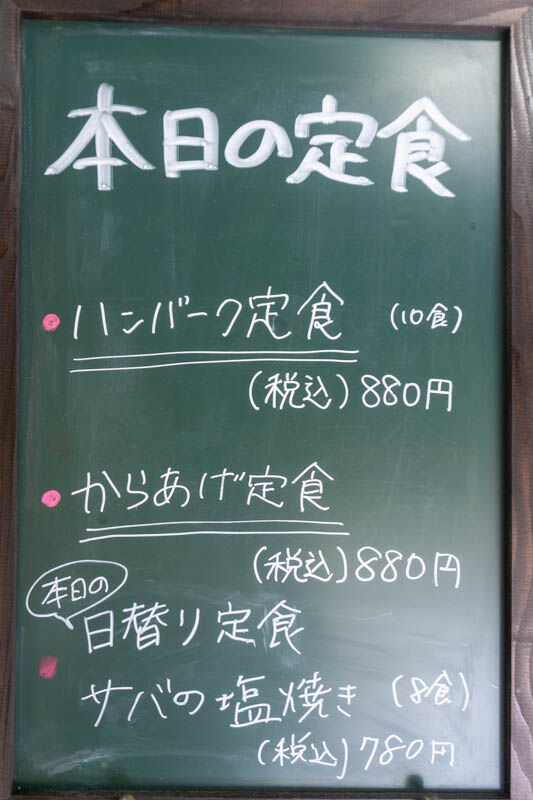 本日の定食
ハンバーク定食 (10食)
(税込) 880円
からあげ定食
(税込) 880円
本日の
日替り定食
サバの塩焼き (8食)
(税込) 780円